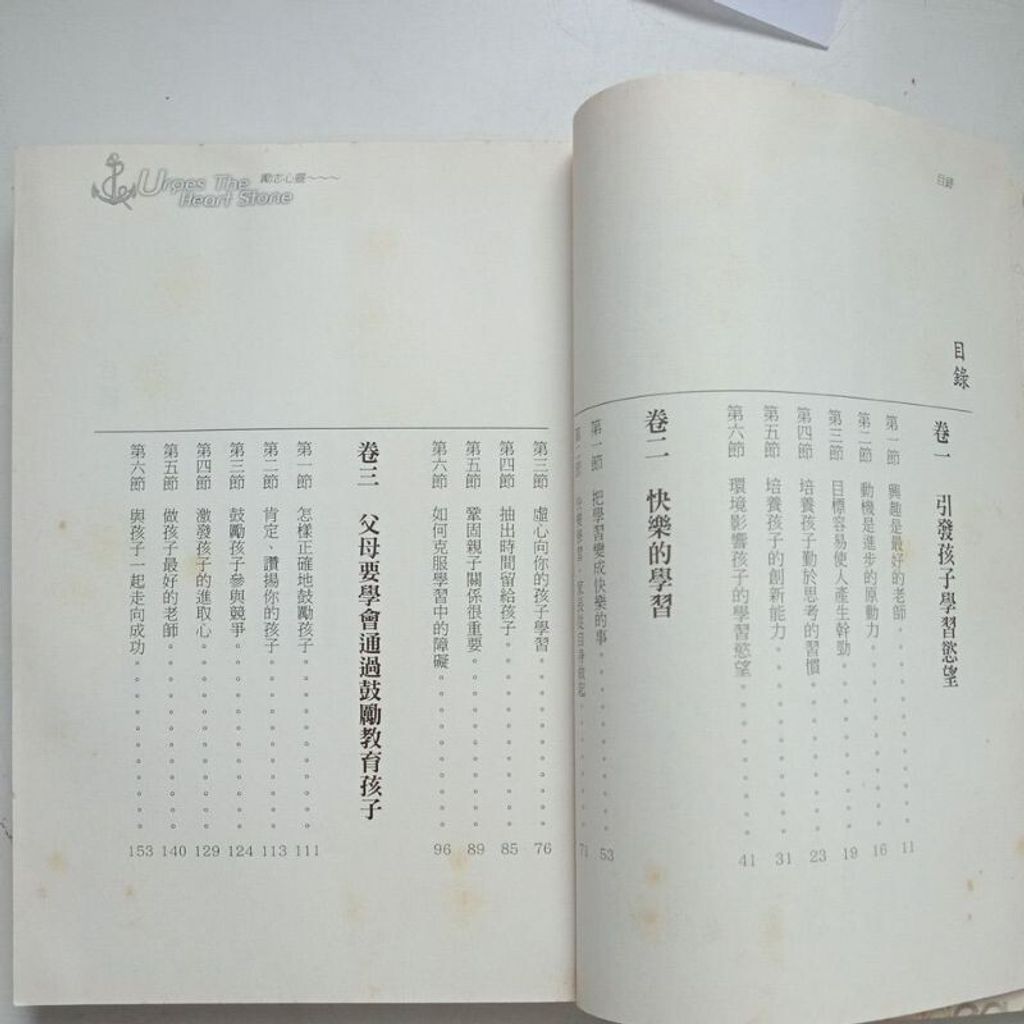 目錄
目錄
卷一 引發孩子學習慾望
第一節 興趣是最好的老師。。。。。。。。11
第二節 動機是進步的原動力。。。。。。。。16
第三節 目標容易使人產生幹勁。。。。。。。19
第四節 培養孩子勤於思考的習慣。。。。。。。23
第五節 培養孩子的創新能力。。。。。。。。31
第六節 環境影響孩子的學習慾望。。。。。。。41
卷二 快樂的學習
第一節 把學習變成快樂的事。。。。。。。。53
71
Urges The Heart Stone 勵志心靈~~~
第三節 虛心向你的孩子學習。。。。。。。。76
第四節 抽出時間留給孩子。。。。。。。。85
第五節 鞏固親子關係很重要。。。。。。。。89
第六節 如何克服學習中的障礙。。。。。。。96
卷三 父母要學會通過鼓勵教育孩子
第一節 怎樣正確地鼓勵孩子。。。。。。。。111
第二節 肯定、讚揚你的孩子。。。。。。。。113
第三節 鼓勵孩子參與競爭。。。。。。。。124
第四節 激發孩子的進取心。。。。。。。。129
第五節 做孩子最好的老師。。。。。。。。140
第六節 與孩子一起走向成功。。。。。。。。153